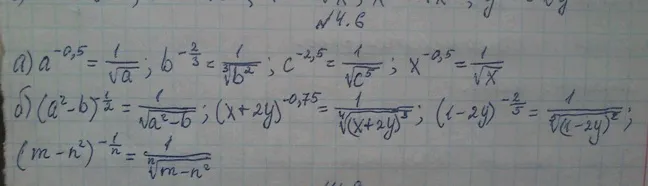 №4.6
а) a^{-0,5} = 1/√a ; b^{-2/3} = 1/∛(b²) ; c^{-2,5} = 1/√(c⁵) ; x^{-0,5} = 1/√x
б) (a²-b)^{-1/2} = 1/√(a²-b) ; (x+2y)^{-0,75} = 1/∜((x+2y)³) ; (1-2y)^{-2/5} = 1/⁵√((1-2y)²) ;
(m-n²)^{-1/n} = 1/ⁿ√(m-n²)